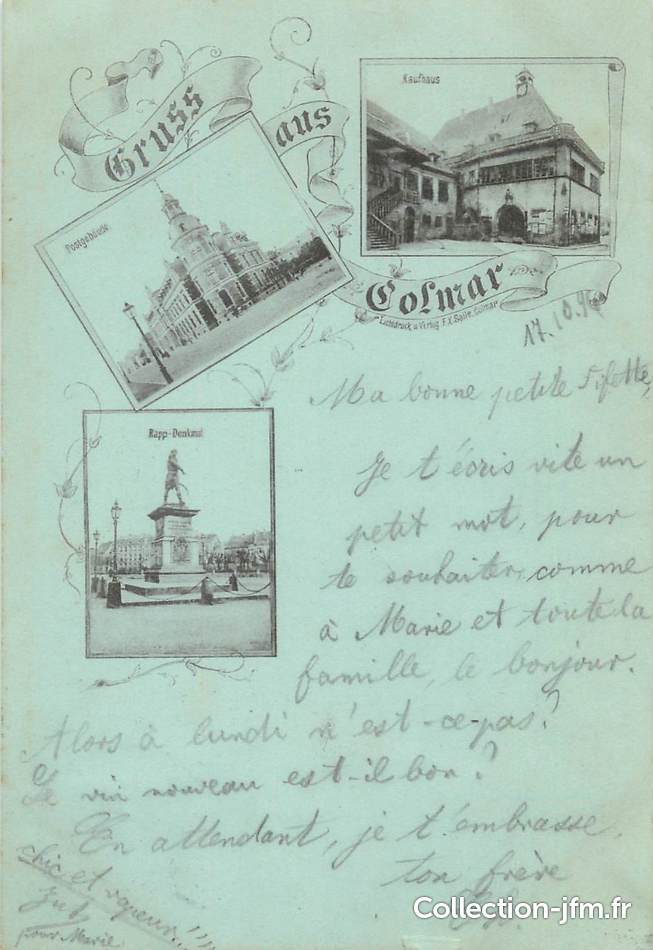 Gruss
aus
Colmar
Kaufhaus
Postgebäude
Lichtdruck u. Verlag F. X. Saile, Colmar
17. 10. 9
Rapp-Denkmal
Ma bonne petite Fifette,
Je t'écris vite un
petit mot, pour
te souhaiter, comme
à Marie et toute la
famille, le bonjour.
Alors à lundi n'est-ce-pas?
Le vin nouveau est-il bon?
En attendant, je t'embrasse.
ton frère
chic et vgueur!!!!
pour Marie
Collection-jfm.fr